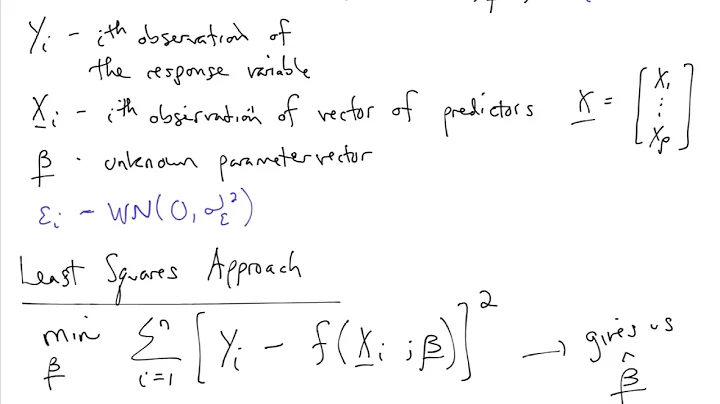 Yᵢ - iᵗʰ observation of
the response variable
X̲ᵢ - iᵗʰ observation of vector of predictors X̲ = [X₁ ⋮ Xₚ]
β̲ - unknown parameter vector
εᵢ ~ WN(0, σ_ε²)
Least Squares Approach
min_β̲ Σⁿᵢ₌₁ [Yᵢ - f(X̲ᵢ ; β̲)]² → gives us
β̲̂